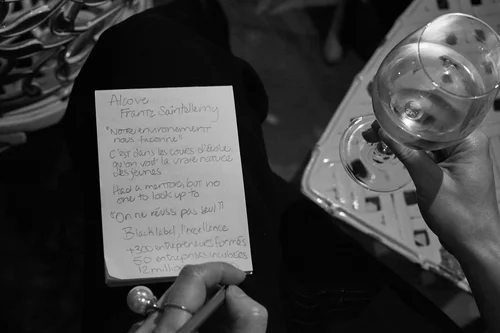 Alcove
Frantz Saintellemy
"Notre environnement
nous façonne"
C'est dans les cours d'école
qu'on voit la vraie nature
des jeunes.
Had a mentor, but no
one to look up to
"On ne réussi pas seul"
Black label, l'excellence
+300 entrepreneurs formés
50 entreprises incubées
12 million